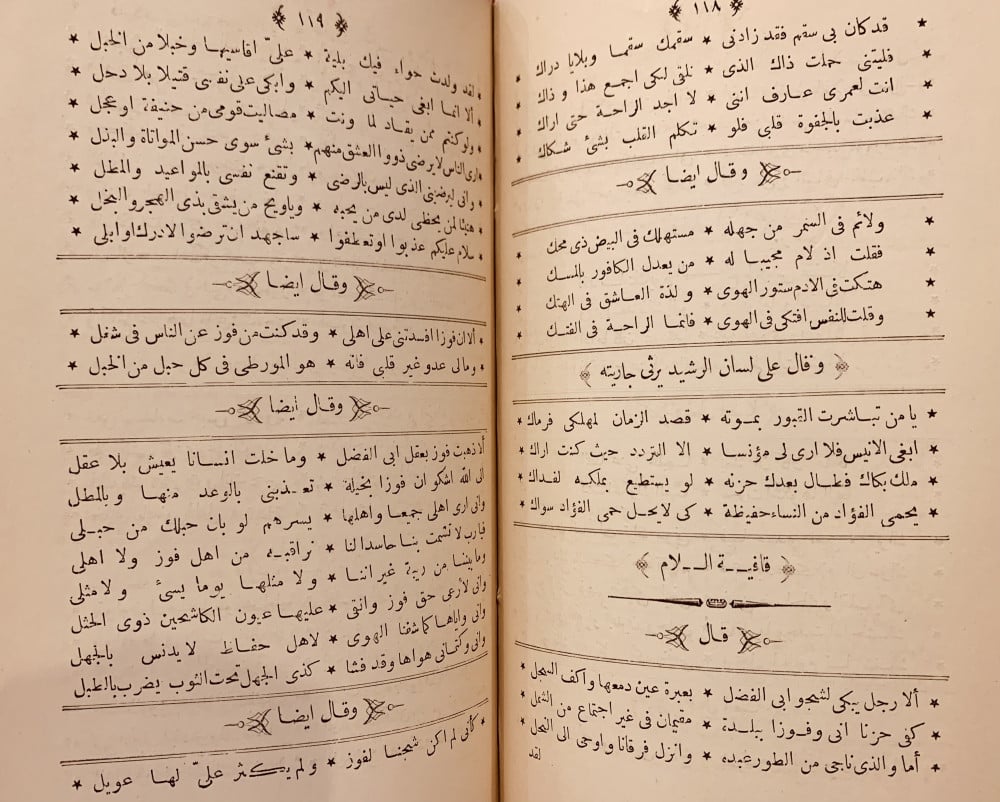 ١١٨
* قد كان بى سقم فقد زادنى * سقمك سقما وبلايا دراك
* فليتنى حملت ذاك الذى * تلقى لكى اجمع هذا وذاك
* انت لعمرى عارف اننى * لا اجد الراحة حتى اراك
* عذبت بالجفوة قلبى فلو * تكلم القلب بشئ شكاك
وقال ايضا
* ولائم فى السمر من جهله * مستهلك فى البيض ذى محك
* فقلت اذ لام مجيبا له * من يعدل الكافور بالمسك
* هتكت فى الادم ستور الهوى * ولذة العاشق فى الهتك
* وقلت للنفس افتكى فى الهوى * فانما الراحة فى الفتك
وقال على لسان الرشيد يرثى جاريته
* يا من تباشرت القبور بموته * قصد الزمان لمهلكى فرماك *
* ابغى الانيس فلا ارى لى مؤنسا * الا التردد حيث كنت اراك *
* ملك بكاك فطال بعدك حزنه * لو يستطيع بملكه لفداك *
* يحمى الفؤاد من النساء حفيظة * كى لا يحل حمى الفؤاد سواك *
قافيـة الـلام
قال
* ألا رجل يبكى لشجو ابى الفضل * بعبرة عين دمعها واكف السجل *
* كفى حزنا انى وفوزا ببلدة * مقيمان فى غير اجتماع من الشمل *
* أما والذى ناجى من الطور عبده * وانزل فرقانا واوحى الى النحل
لقد
١١٩
* لقد ولدت حواء فيك بلية * علىّ اقاسيها وخبلا من الخبل *
* ألا انما ابغى حياتى اليكم * وابكى على نفسى قتيلا بلا دحل *
* ولو كنتم ممن يقاد لما ونت * مصاليت قومى من حنيفة او عجل *
* ارى الناس لا يرضى ذووا العشق منهم * بشئ سوى حسن المواتاة والبذل *
* وانى ليرضينى الذى ليس بالرضى * وتقنع نفسى بالمواعيد والمطل *
* هنيئا لمن يحظى لدى من يحبه * وياويح من يشقى بذى الهجر والبخل *
* سلام عليكم عذبوا او تعطفوا * ساجهد ان ترضوا الا درك او ابلى *
وقال ايضا
* ألا ان فوزا افسدتنى على اهلى * وقد كنت من فوز عن الناس فى شغل *
* ومالى عدو غير قلبى فانه * هو المورطى فى كل حبل من الخبل *
وقال أيضا
ألا ذهبت فوز بعقل ابى الفضل * وما خلت انسانا يعيش بلا عقل
الى الله اشكو ان فوزا بخيلة * تعذبنى بالوعد منها وبالمطل
وانى ارى اهلى جمعا واهلها * يسرهم لو بان حبلك من حبلى
فيا رب لا تشمت بنا حاسدا لنا * نراقبه من اهل فوز ولا اهلى
وما بيننا من ريبة غير اننا * ولا مثلها يوما يسئ ولا مثلى
وانى لأرعى حق فوز واتقى * عليها عيون الكاشحين ذوى الختل
وانى واياها كما شفنا الهوى * لاهل حفاظ لا يدنس بالجهل
وانى وكتمانى هواها وقد فشا * كذى الجهل تحت الثوب يضرب بالطبل
وقال ايضا
* كأنى لم اكن شجنا لفوز * ولم يكثر علىّ لها عويل *